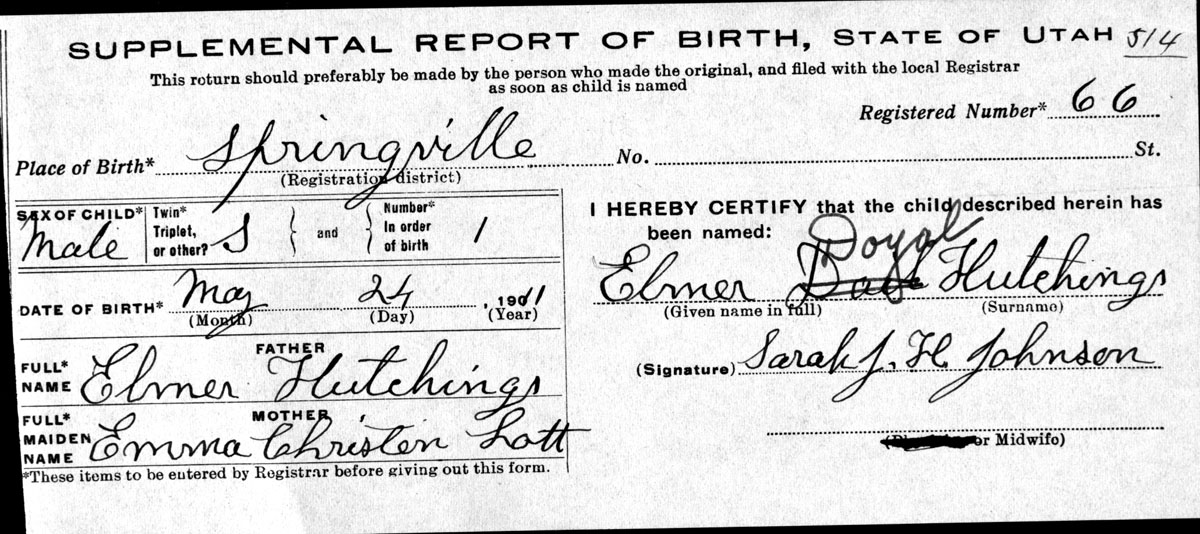 SUPPLEMENTAL REPORT OF BIRTH, STATE OF UTAH 514
This return should preferably be made by the person who made the original, and filed with the local Registrar
as soon as child is named
Registered Number* 66
Place of Birth* Springville No. St.
(Registration district)
SEX OF CHILD* Male
Twin* Triplet, or other? S } and { Number* In order of birth 1
DATE OF BIRTH* May 24, 1911
(Month) (Day) (Year)
FATHER
FULL* NAME Elmer Hutchings
MOTHER
FULL* MAIDEN NAME Emma Christen Lott
*These items to be entered by Registrar before giving out this form.
I HEREBY CERTIFY that the child described herein has
been named:
Doyal
Elmer Hutchings
(Given name in full) (Surname)
(Signature) Sarah J. H. Johnson
or Midwife)